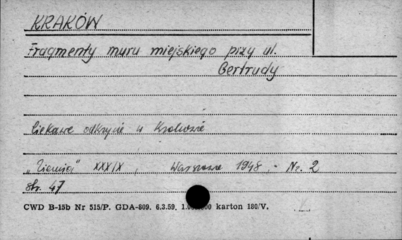 KRAKÓW
Fragmenty muru miejskiego przy ul.
Gertrudy
Ciekawe odkrycie w Krakowie
"Ziemia" XXXIX, Warszawa 1948, - Nr. 2
str. 47
CWD B-15b Nr 515/P. GDA-609. 6.3.59. karton 180/V.